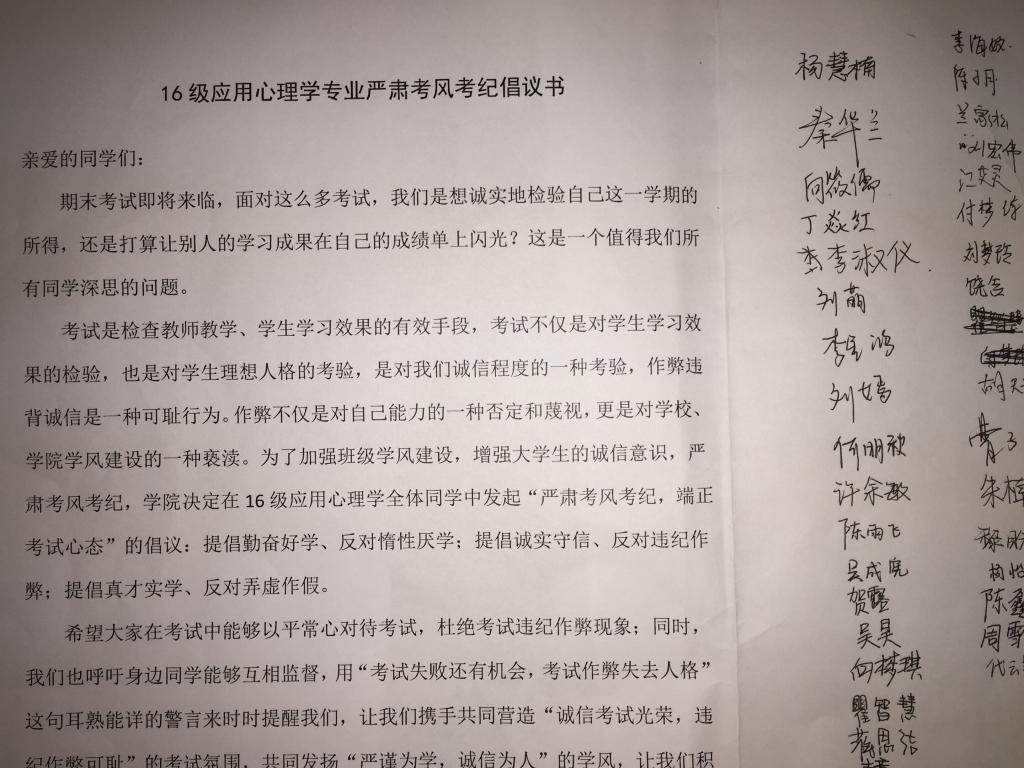 16级应用心理学专业严肃考风考纪倡议书
亲爱的同学们：
期末考试即将来临，面对这么多考试，我们是想诚实地检验自己这一学期的
所得，还是打算让别人的学习成果在自己的成绩单上闪光？这是一个值得我们所
有同学深思的问题。
考试是检查教师教学、学生学习效果的有效手段，考试不仅是对学生学习效
果的检验，也是对学生理想人格的考验，是对我们诚信程度的一种考验，作弊违
背诚信是一种可耻行为。作弊不仅是对自己能力的一种否定和蔑视，更是对学校、
学院学风建设的一种亵渎。为了加强班级学风建设，增强大学生的诚信意识，严
肃考风考纪，学院决定在16级应用心理学全体同学中发起“严肃考风考纪，端正
考试心态”的倡议：提倡勤奋好学、反对惰性厌学；提倡诚实守信、反对违纪作
弊；提倡真才实学、反对弄虚作假。
希望大家在考试中能够以平常心对待考试，杜绝考试违纪作弊现象；同时，
我们也呼吁身边同学能够互相监督，用“考试失败还有机会，考试作弊失去人格”
这句耳熟能详的警言来时时提醒我们，让我们携手共同营造“诚信考试光荣，违
纪作弊可耻”的考试氛围，共同发扬“严谨为学，诚信为人”的学风，让我们积
杨慧楠
秦华兰
丁焱红
李淑仪
刘萌
刘嫣
许余敏
陈雨飞
吴成院
贺露
吴昊
向梦琪
瞿智慧
李海敏
刘宏伟
刘梦玲
饶含